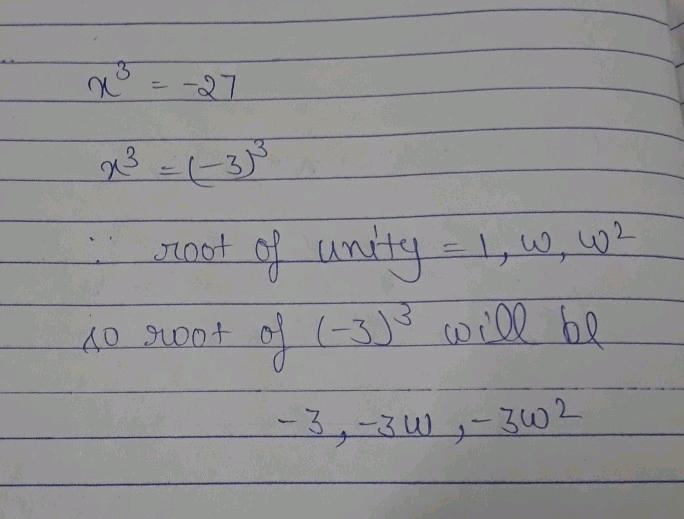 x³ = -27
x³ = (-3)³
∵ root of unity = 1, ω, ω²
so root of (-3)³ will be
-3, -3ω, -3ω²